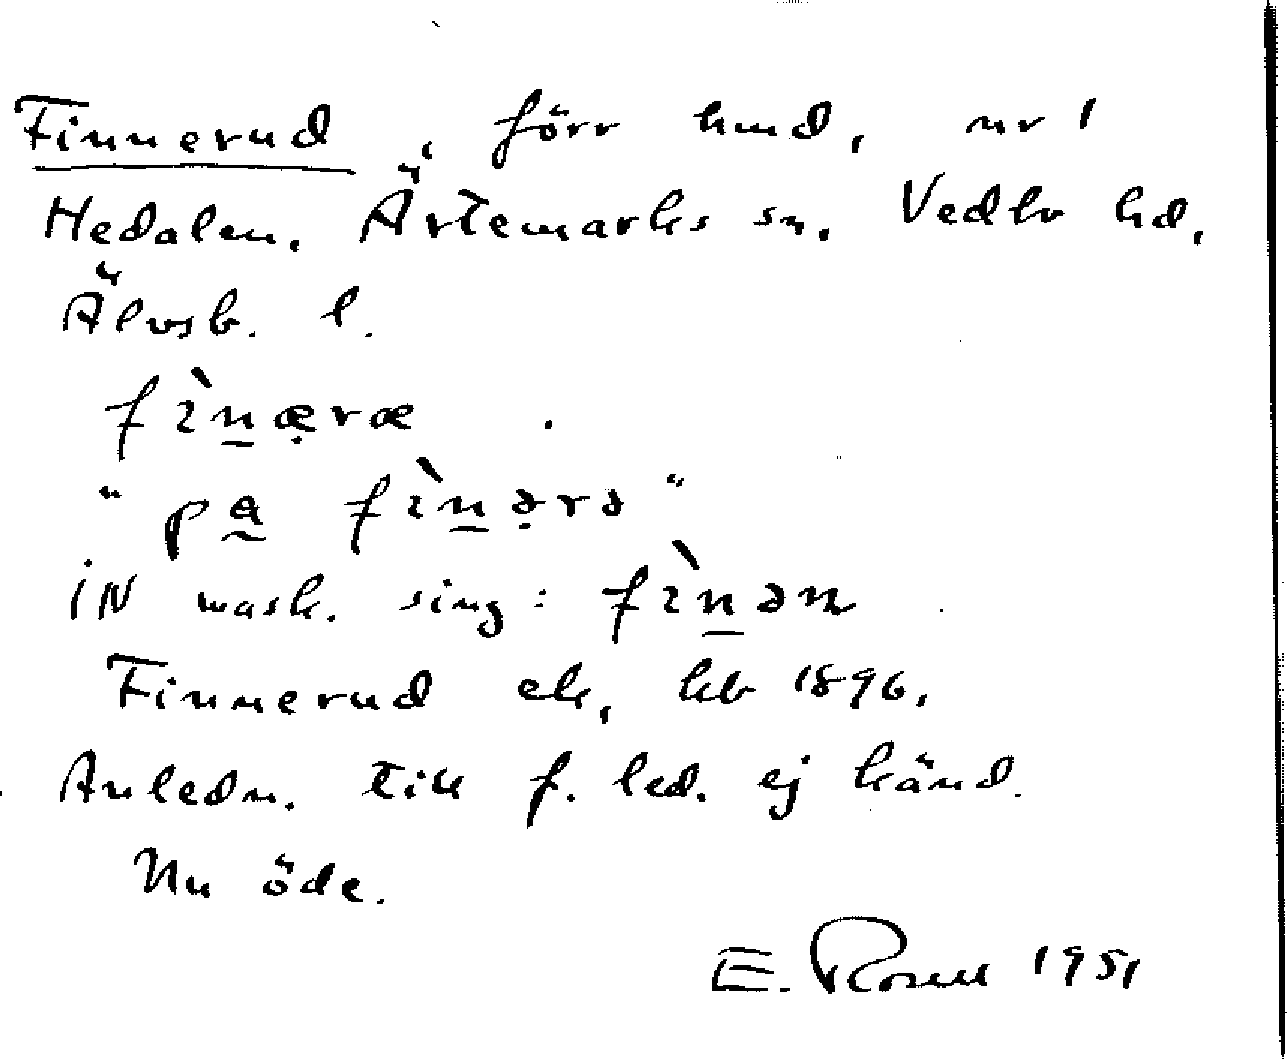 Finnerud, förr hmd, nr 1
Hedalen. Ärtemarks sn. Vedbo hd,
Älvsb. l.
fìn̲æ̣ræ .
"pa̰ fìn̲ə̣rə"
iN mask. sing: fìn̲ən
Finnerud ek, kb 1896.
Anledn. till f. led. ej känd.
Nu öde.
E. Rosell 1951